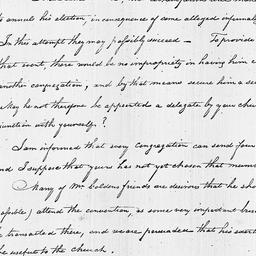 to annul his election, in consequence of some alledged informal
In this attempt they may possibly succeed — To provide
that event, there would be no impropriety in having him
another congregation, and by that means secure him a se
May he not therefore be appointed a delegate by your chur
junction with yourself?
I am informed that every congregation can send four
and I suppose that yours has not yet chosen that num
Many of Mr Colden friends are desirous that he sho
possible) attend the convention, as some very important bus
be transacted there, and we are persuaded that his
be useful to the church.